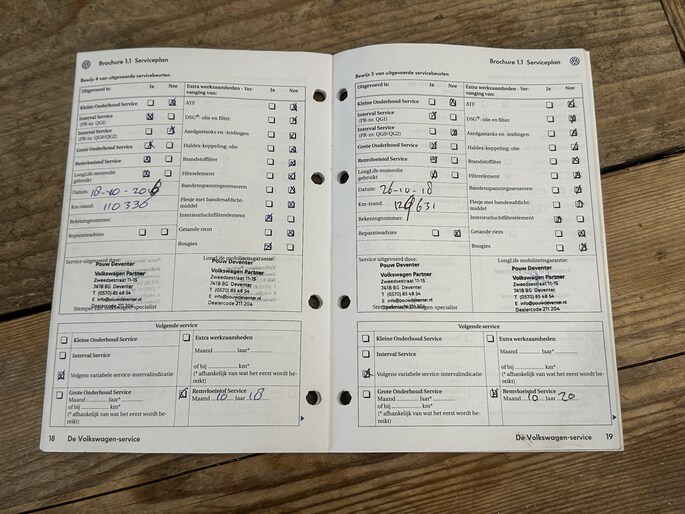 Brochure 1.1 Serviceplan
Bewijs 4 van uitgevoerde servicebeurten
Uitgevoerd is: Ja Nee
Kleine Onderhoud Service
Interval Service
(PR-nr. QGI)
Interval Service
(PR-nr. QG0/QG2)
Grote Onderhoud Service
Remvloeistof Service
LongLife motorolie
gebruikt
Datum: 18-10-2016
Km-stand: 110336
Rekeningnummer:
Reparatieadvies
Extra werkzaamheden - Ver-
vanging van: Ja Nee
ATF
DSG®: olie en filter
Aardgastanks en -leidingen
Haldex-koppeling: olie
Brandstoffilter
Filterelement
Bandenspanningssensoren
Flesje met bandenafdicht-
middel
Interieurluchtfilterelement
Getande riem
Bougies
Service uitgevoerd door:
Pouw Deventer
Volkswagen Partner
Zweedsestraat 11-15
7418 BG Deventer
T (0570) 85 48 54
E info@pouwdeventer.nl
Dealercode 211 204
LongLife mobiliteitsgarantie:
Pouw Deventer
Volkswagen Partner
Zweedsestraat 11-15
7418 BG Deventer
T (0570) 85 48 54
E info@pouwdeventer.nl
Dealercode 211 204
Volgende service
Kleine Onderhoud Service
Interval Service
Volgens variabele service-intervalindicatie
Extra werkzaamheden
Maand Jaar*
of bij km*
(* afhankelijk van wat het eerst wordt be-
reikt)
Grote Onderhoud Service
Maand Jaar*
of bij km*
(* afhankelijk van wat het eerst wordt be-
reikt)
Remvloeistof Service
Maand 10 Jaar 18
18 De Volkswagen-service
Brochure 1.1 Serviceplan
Bewijs 5 van uitgevoerde servicebeurten
Uitgevoerd is: Ja Nee
Kleine Onderhoud Service
Interval Service
(PR-nr. QGI)
Interval Service
(PR-nr. QG0/QG2)
Grote Onderhoud Service
Remvloeistof Service
LongLife motorolie
gebruikt
Datum: 26-10-18
Km-stand:
Rekeningnummer:
Reparatieadvies
Extra werkzaamheden - Ver-
vanging van: Ja Nee
ATF
DSG®: olie en filter
Aardgastanks en -leidingen
Haldex-koppeling: olie
Brandstoffilter
Filterelement
Bandenspanningssensoren
Flesje met bandenafdicht-
middel
Interieurluchtfilterelement
Getande riem
Bougies
Service uitgevoerd door:
Pouw Deventer
Volkswagen Partner
Zweedsestraat 11-15
7418 BG Deventer
T (0570) 85 48 54
E info@pouwdeventer.nl
Dealercode 211 204
LongLife mobiliteitsgarantie:
Pouw Deventer
Volkswagen Partner
Zweedsestraat 11-15
7418 BG Deventer
T (0570) 85 48 54
E info@pouwdeventer.nl
Dealercode 211 204
Volgende service
Kleine Onderhoud Service
Interval Service
Volgens variabele service-intervalindicatie
Extra werkzaamheden
Maand Jaar*
of bij km*
(* afhankelijk van wat het eerst wordt be-
reikt)
Grote Onderhoud Service
Maand Jaar*
of bij km*
(* afhankelijk van wat het eerst wordt be-
reikt)
Remvloeistof Service
Maand 10 Jaar 20
De Volkswagen-service 19